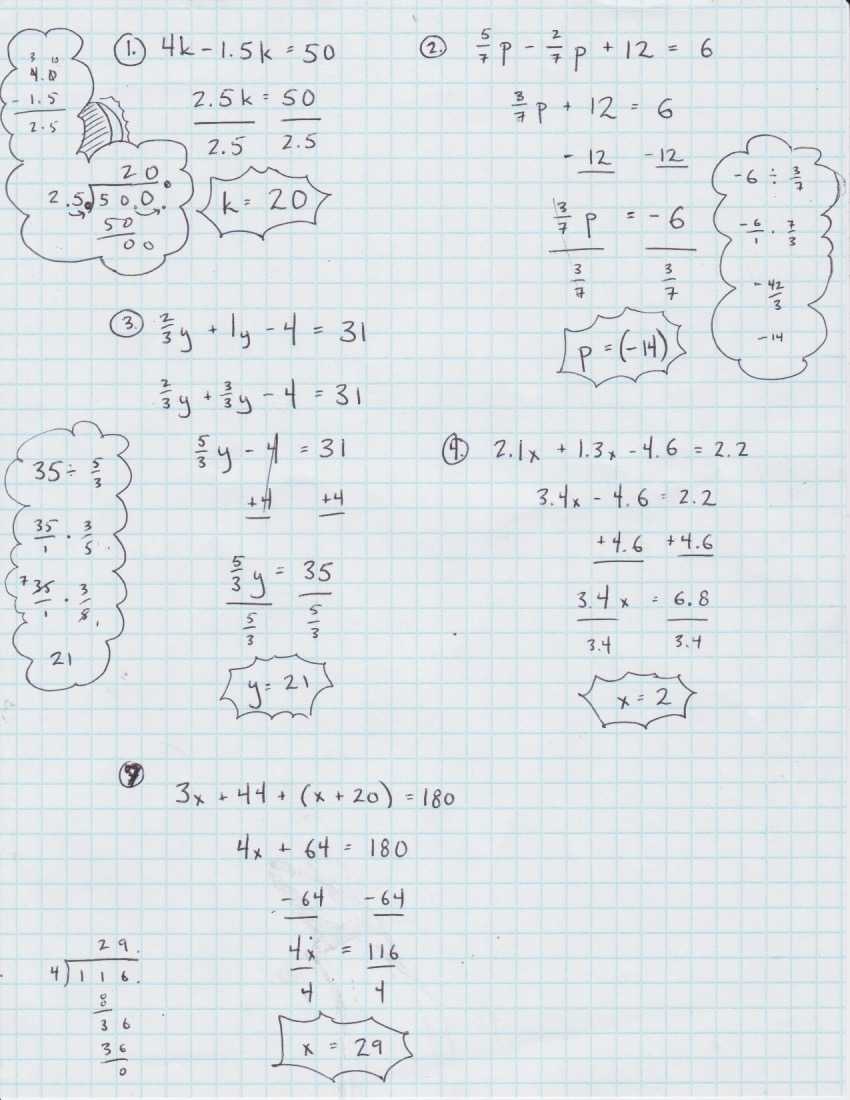 1. 4k - 1.5k = 50
2.5k = 50
2.5 2.5
k = 20
3 10
4.0
- 1.5
2.5
20.
2.5.)50.0.
50
00
2. 5/7 p - 2/7 p + 12 = 6
3/7 p + 12 = 6
- 12 - 12
3/7 p = - 6
3/7 3/7
p = (-14)
-6 ÷ 3/7
-6/1 · 7/3
-42/3
-14
3. 2/3 y + 1y - 4 = 31
2/3 y + 3/3 y - 4 = 31
5/3 y - 4 = 31
+4 +4
5/3 y = 35
5/3 5/3
y = 21
35 ÷ 5/3
35/1 · 3/5
7 35/1 · 3/5 1
21
4. 2.1x + 1.3x - 4.6 = 2.2
3.4x - 4.6 = 2.2
+4.6 +4.6
3.4x = 6.8
3.4 3.4
x = 2
9 3x + 44 + (x + 20) = 180
4x + 64 = 180
- 64 - 64
4x = 116
4 4
x = 29
29.
4)116.
8
36
36
0